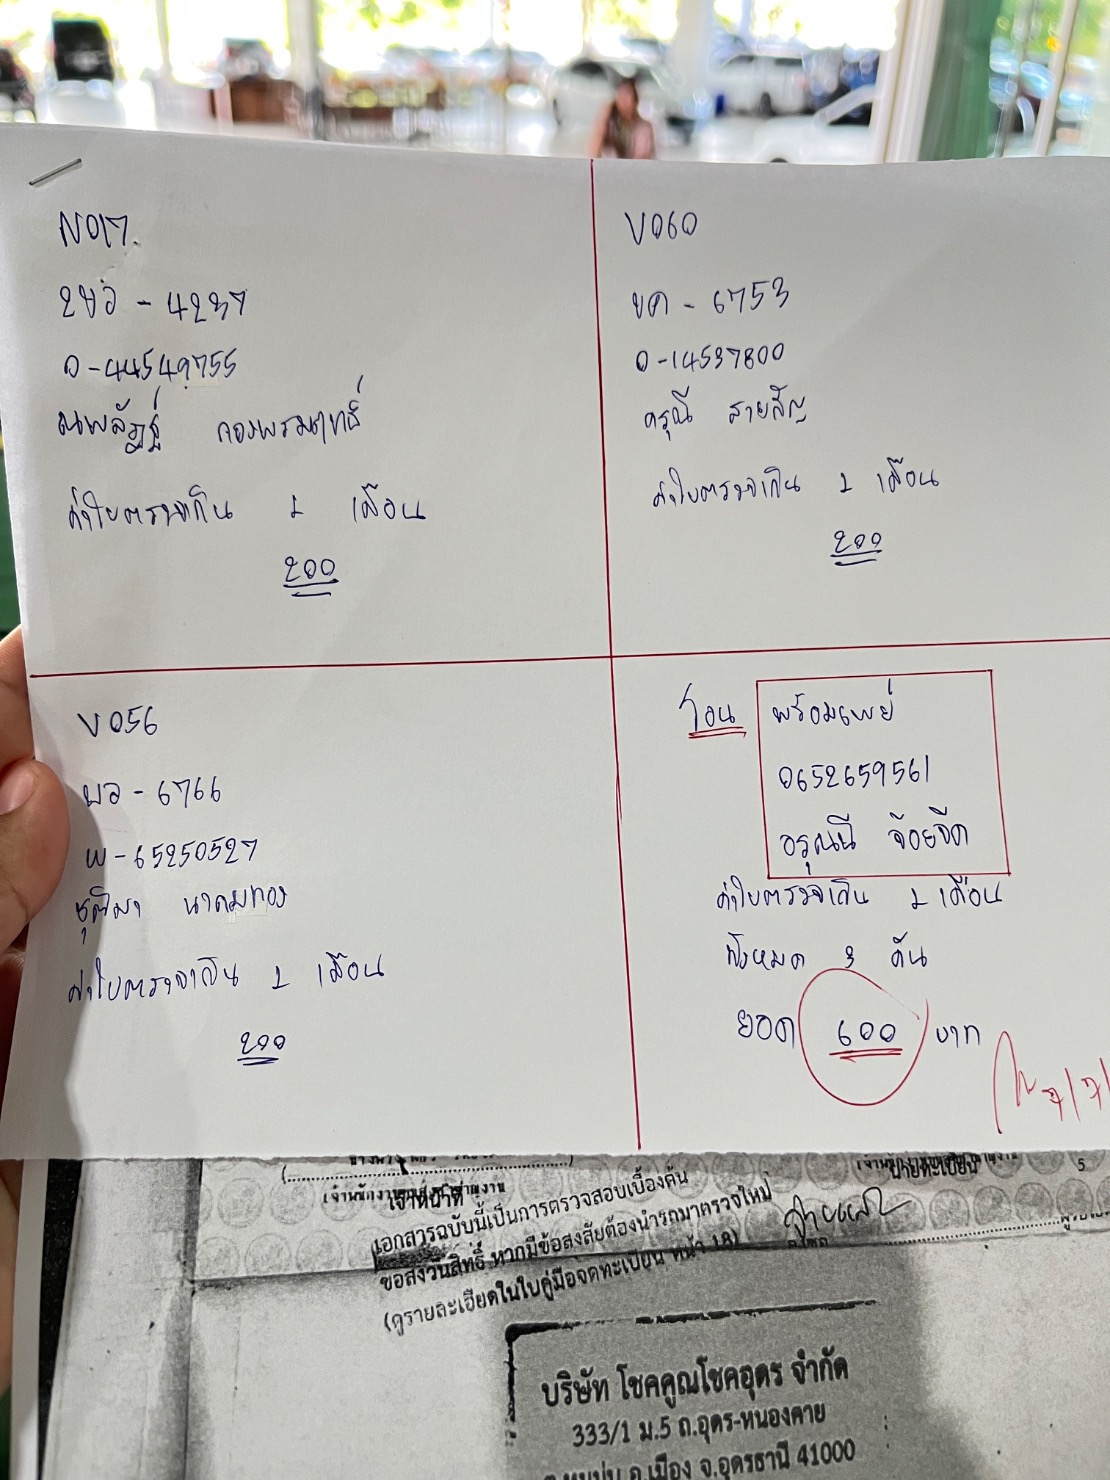 N017.
2ขอ - 4237
0-44549755
ณพลัฏฐ์
ค่าใบตรวจเกิน 1 เดือน
200
V060
ขค - 6753
0-14537800
ดรุณี สายสัญ
ค่าใบตรวจเกิน 1 เดือน
200
V056
ผอ - 6766
พ-65250527
ชุติมา นาคมทอง
ค่าใบตรวจเกิน 1 เดือน
200
โอน
พร้อมเพย์
0652659561
อรุณนี จ้อยจีด
ค่าใบตรวจเกิน 1 เดือน
ทั้งหมด 3 คัน
ยอด 600 บาท
7/7/
5
นายทะเบียน
เจ้าหน้าที่
เอกสารฉบับนี้เป็นการตรวจสอบเบื้องต้น
ขอสงวนสิทธิ์ หากมีข้อสงสัยต้องนำรถมาตรวจใหม่
(ดูรายละเอียดในใบคู่มือจดทะเบียน หน้า 18)
บริษัท โชคคูณโชคอุดร จำกัด
333/1 ม.5 ถ.อุดร-หนองคาย
อ.เมือง จ.อุดรธานี 41000